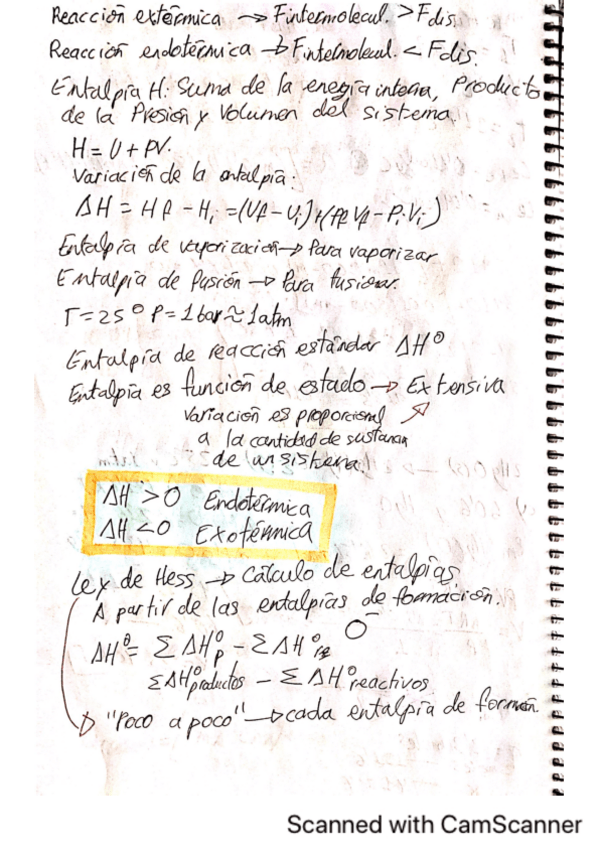 Reacción extérmica → Fintermolecul. > Fdis.
Reacción endotérmica → Fintelmolecul. < Fdis.
Entalpía H: Suma de la enegía interna, Producto
de la Presión y Volumen del sistema.
H = U + PV.
Variación de la entalpía:
ΔH = Hf - Hi = (Uf - Ui) + (Pf Vf - Pi Vi)
Entalpía de vaporización → Para vaporizar
Entalpía de fusión → Para fusionar.
T = 25º P = 1 bar ≈ 1 atm
Entalpía de reacción estándar ΔHº
Entalpía es función de estado → Extensiva
Variación es proporcional
a la cantidad de sustancia
de un sistema
ΔH > 0 Endotérmica
ΔH < 0 Exotérmica
Ley de Hess → Cálculo de entalpías.
A partir de las entalpías de formación.
ΔHº = Σ ΔHºp - Σ ΔHºre
Σ ΔHºproductos - Σ ΔHºreactivos
"Poco a poco" → cada entalpía de formón.
Scanned with CamScanner